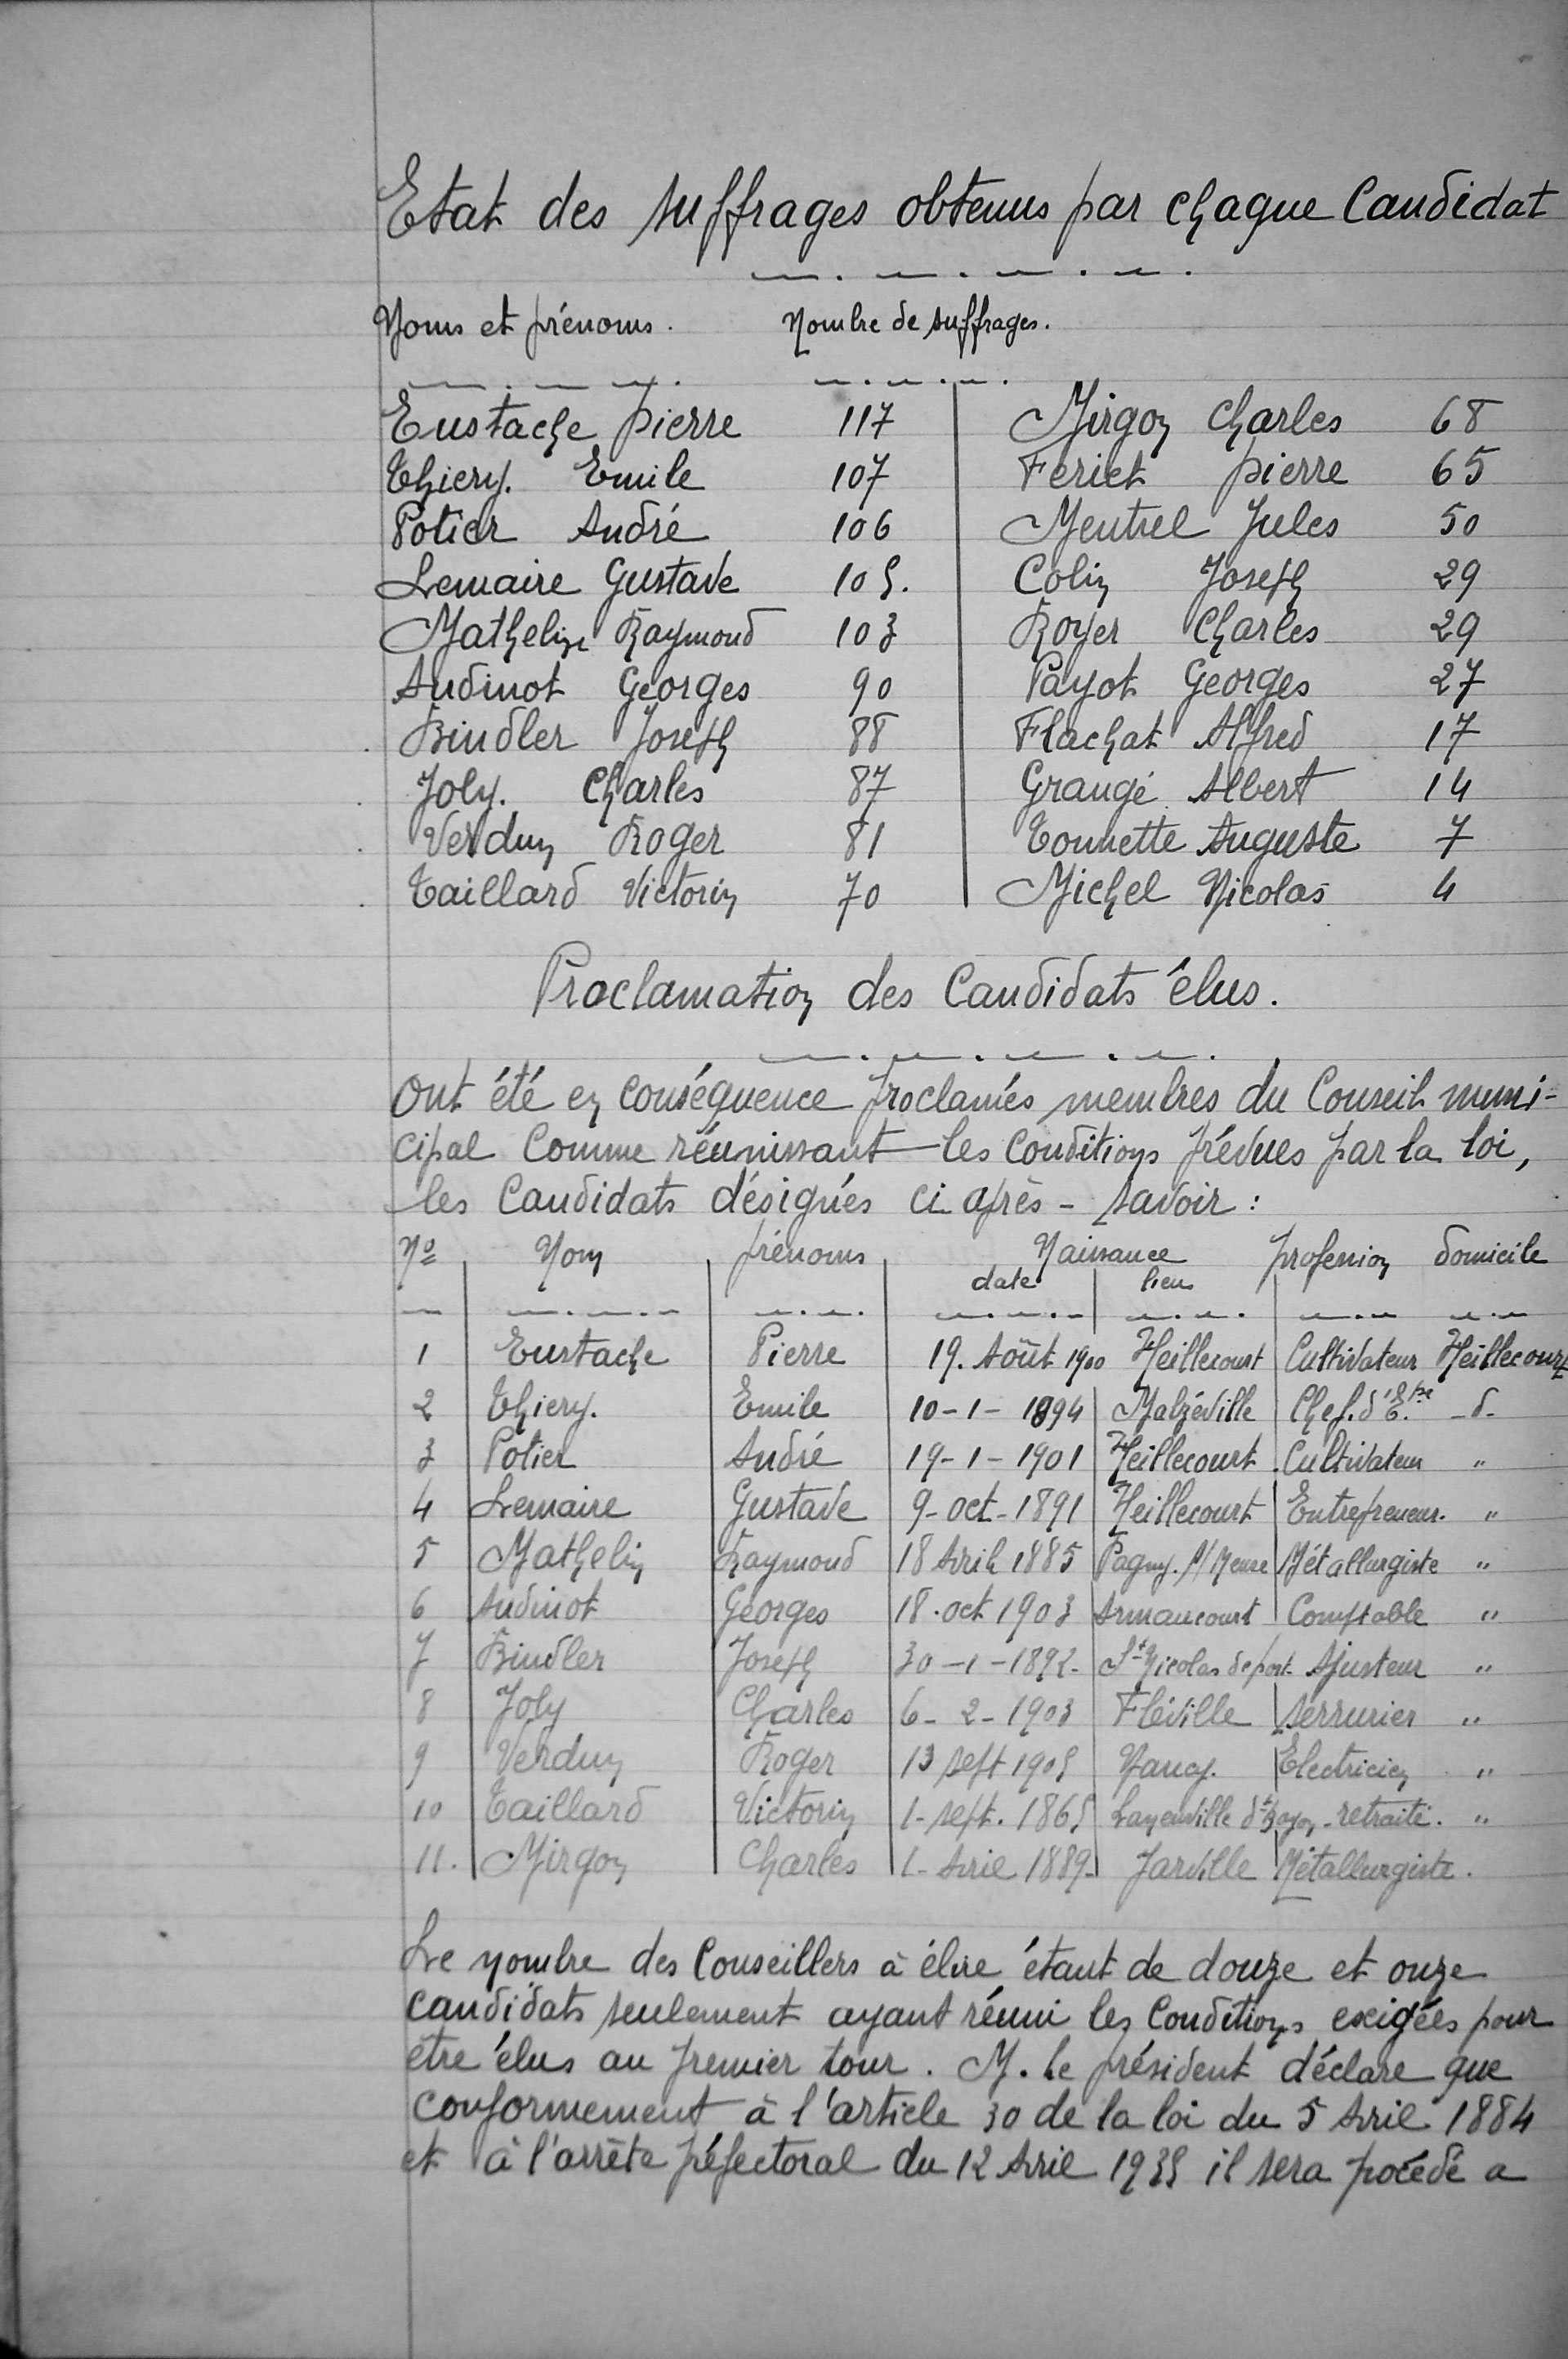 Etat des suffrages obtenus par chaque Candidat
Noms et prénoms. Nombre de suffrages.
Eustache pierre 117 Mirgon Charles 68
Thiery. Emile 107 Feriet pierre 65
Potier André 106 Mentrel Jules 50
Lemaire Gustave 105. Colin Joseph 29
Mathelin Raymond 103 Royer Charles 29
Audinot Georges 90 Payot Georges 27
Bindler Joseph 88 Flachat Alfred 17
Joly. Charles 87 Grangé Albert 14
Verdun Roger 81 Tonnette Auguste 7
Taillard Victorin 70 Michel Nicolas 4
Proclamation des Candidats élus.
Ont été en conséquence proclamés membres du Conseil muni-
cipal Comme réunissant les conditions prévues par la loi,
les Candidats désignés ci après - savoir :
Nº Nom prénoms Naissance profession domicile
date lieu
1 Eustache Pierre 19. Août 1900 Heillecourt Cultivateur Heillecourt
2 Thiery. Emile 10-1-1894 Malzéville Chef. d'E.se -d-
3 Potier André 19-1-1901 Heillecourt Cultivateur "
4 Lemaire Gustave 9-oct-1891 Heillecourt Entrepreneur. "
5 Mathelin Raymond 18 Avril 1885 Pagny. s/ Meuse Métallurgiste "
6 Audinot Georges 18.oct 1903 Armaucourt Comptable "
7 Bindler Joseph 30-1-1892- St Nicolas de port Ajusteur "
8 Joly Charles 6-2-1903 Fléville serrurier "
9 Verdun Roger 13 sept 1905 Nancy. Electricien "
10 Taillard Victorin 1-sept. 1865 retraité. "
11. Mirgon Charles 1-Avril 1889- Jarville Métallurgiste.
Le nombre des Conseillers à élire étant de douze et onze
candidats seulement ayant réuni les Conditions exigées pour
être élus au premier tour. M. le président déclare que
conformement à l'article 30 de la loi du 5 Avril 1884
et à l'arrêté préfectoral du 12 Avril 1935 il sera procédé a